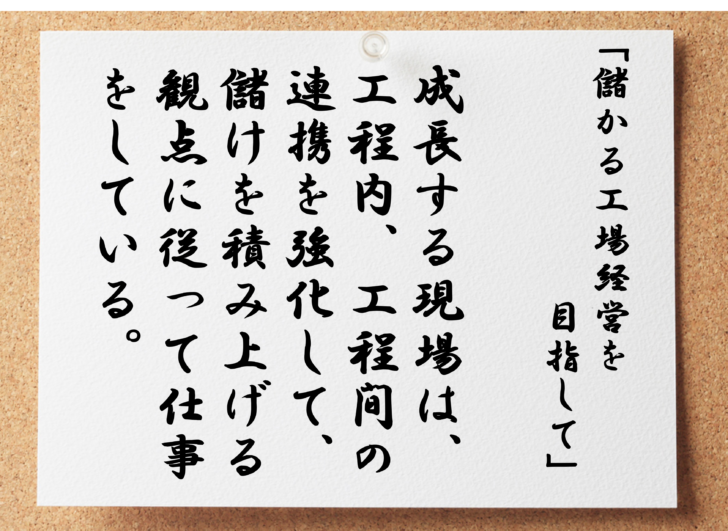 「儲かる工場経営を
目指して」
成長する現場は、
工程内、工程間の
連携を強化して、
儲けを積み上げる
観点に従って仕事
をしている。